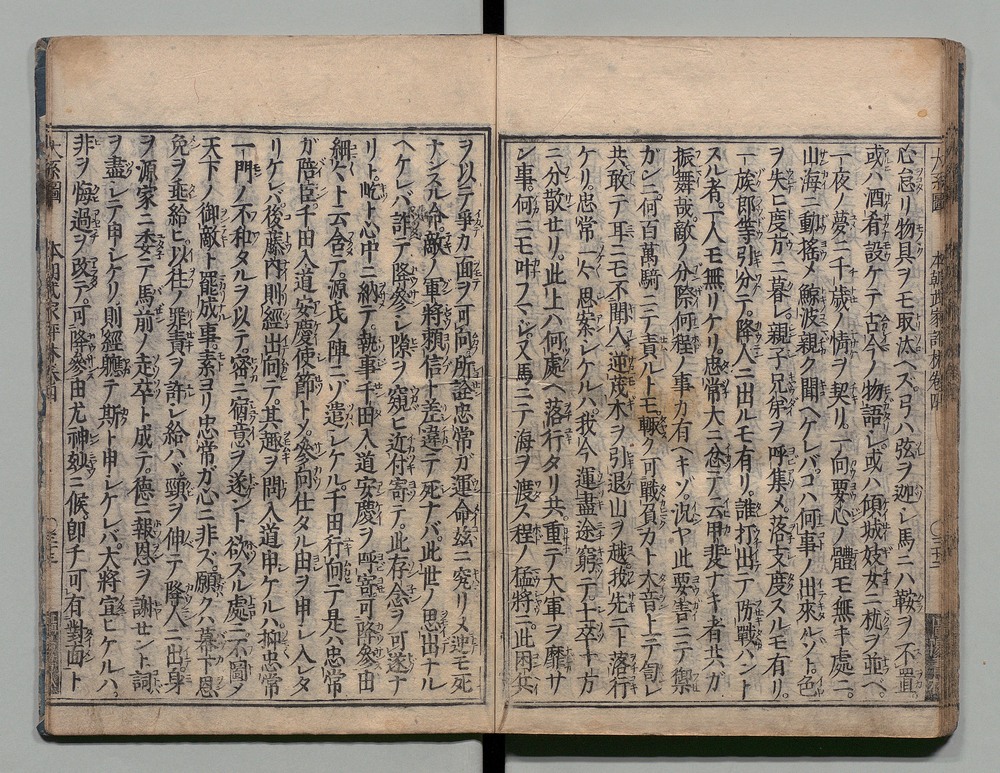 心怠リ物具ヲモ取汰ヘズ弓ハ弦ヲ迦シ馬ニハ鞍ヲ不置
或ハ酒肴設ケテ古今ノ物語シ或ハ傾城妓女ニ枕ヲ並ベ
一夜ノ夢ニ千歳ノ情ヲ契リ一向要心ノ體モ無キ處ニ
山海ニ動搖メ鯨波親ク聞ヘケレバコハ何事ノ出來ルソト色
ヲ失ヒ度方ニ暮レ親子兄弟ヲ呼集メ落支度スルモ有リ
一族郎等引分テ降人ニ出ルモ有リ誰打出テ防戰ハント
スル者一人モ無リケリ忠常大ニ忿テ云甲斐ナキ者共ガ
振舞哉敵ノ分際何程ノ事カ有ヘキゾ況ヤ此要害ニテ禦
ガンニ何百萬騎ニテ責ルトモ輙ク可戰負カト大音上テ訇レ
共敢テ耳ニモ不聞入逆茂木ヲ引退山ヲ越我先ニト落行
ケリ忠常ツクヅク思案シケルハ我今運盡途窮テ士卒十方
ニ分散セリ此上ハ何處ヘ落行タリ共重テ大軍ヲ靡サ
ン事何ニモ叶フマシ又馬ニテ海ヲ渡ス程ノ猛將ニ此困兵
ヲ以テ爭カ面ヲ可向所詮忠常ガ運命玆ニ究リヌ迚モ死
ナンズル命敵ノ軍將賴信ト差違テ死ナバ此世ノ思出ナル
ヘケレバ詐テ降參シ隙ヲ窺ヒ近付寄テ此存念ヲ可遂ナ
リト屹ト心中ニ納テ執事千田入道安慶ヲ呼寄可降參由
細々ト云含テ源氏ノ陣ニゾ遣シケル千田行向テ是ハ忠常
ガ陪臣千田入道安慶使節トメ參向仕タル由ヲ申シ入タ
リケレバ後藤内則經出向テ其趣ヲ問入道申ケルハ抑忠常
一門ノ不和タルヲ以テ密ニ宿意ヲ遂ント欲スル處ニ不圖メ
天下ノ御敵ト罷成事素ヨリ忠常ガ心ニ非ズ願クハ幕下恩
免ヲ垂給ヒ以往ノ罪責ヲ許シ給ハバ頸ヲ伸テ降人ニ出身
ヲ源家ニ委テ馬前ノ走卒ト成テ德ニ報恩ヲ謝セント詞
ヲ盡シテ申シケリ則經軈テ斯ト申シケレバ大將宣ヒケルハ
非ヲ悔過ヲ改テ可降參由尤神妙ニ候卽チ可有對面ト